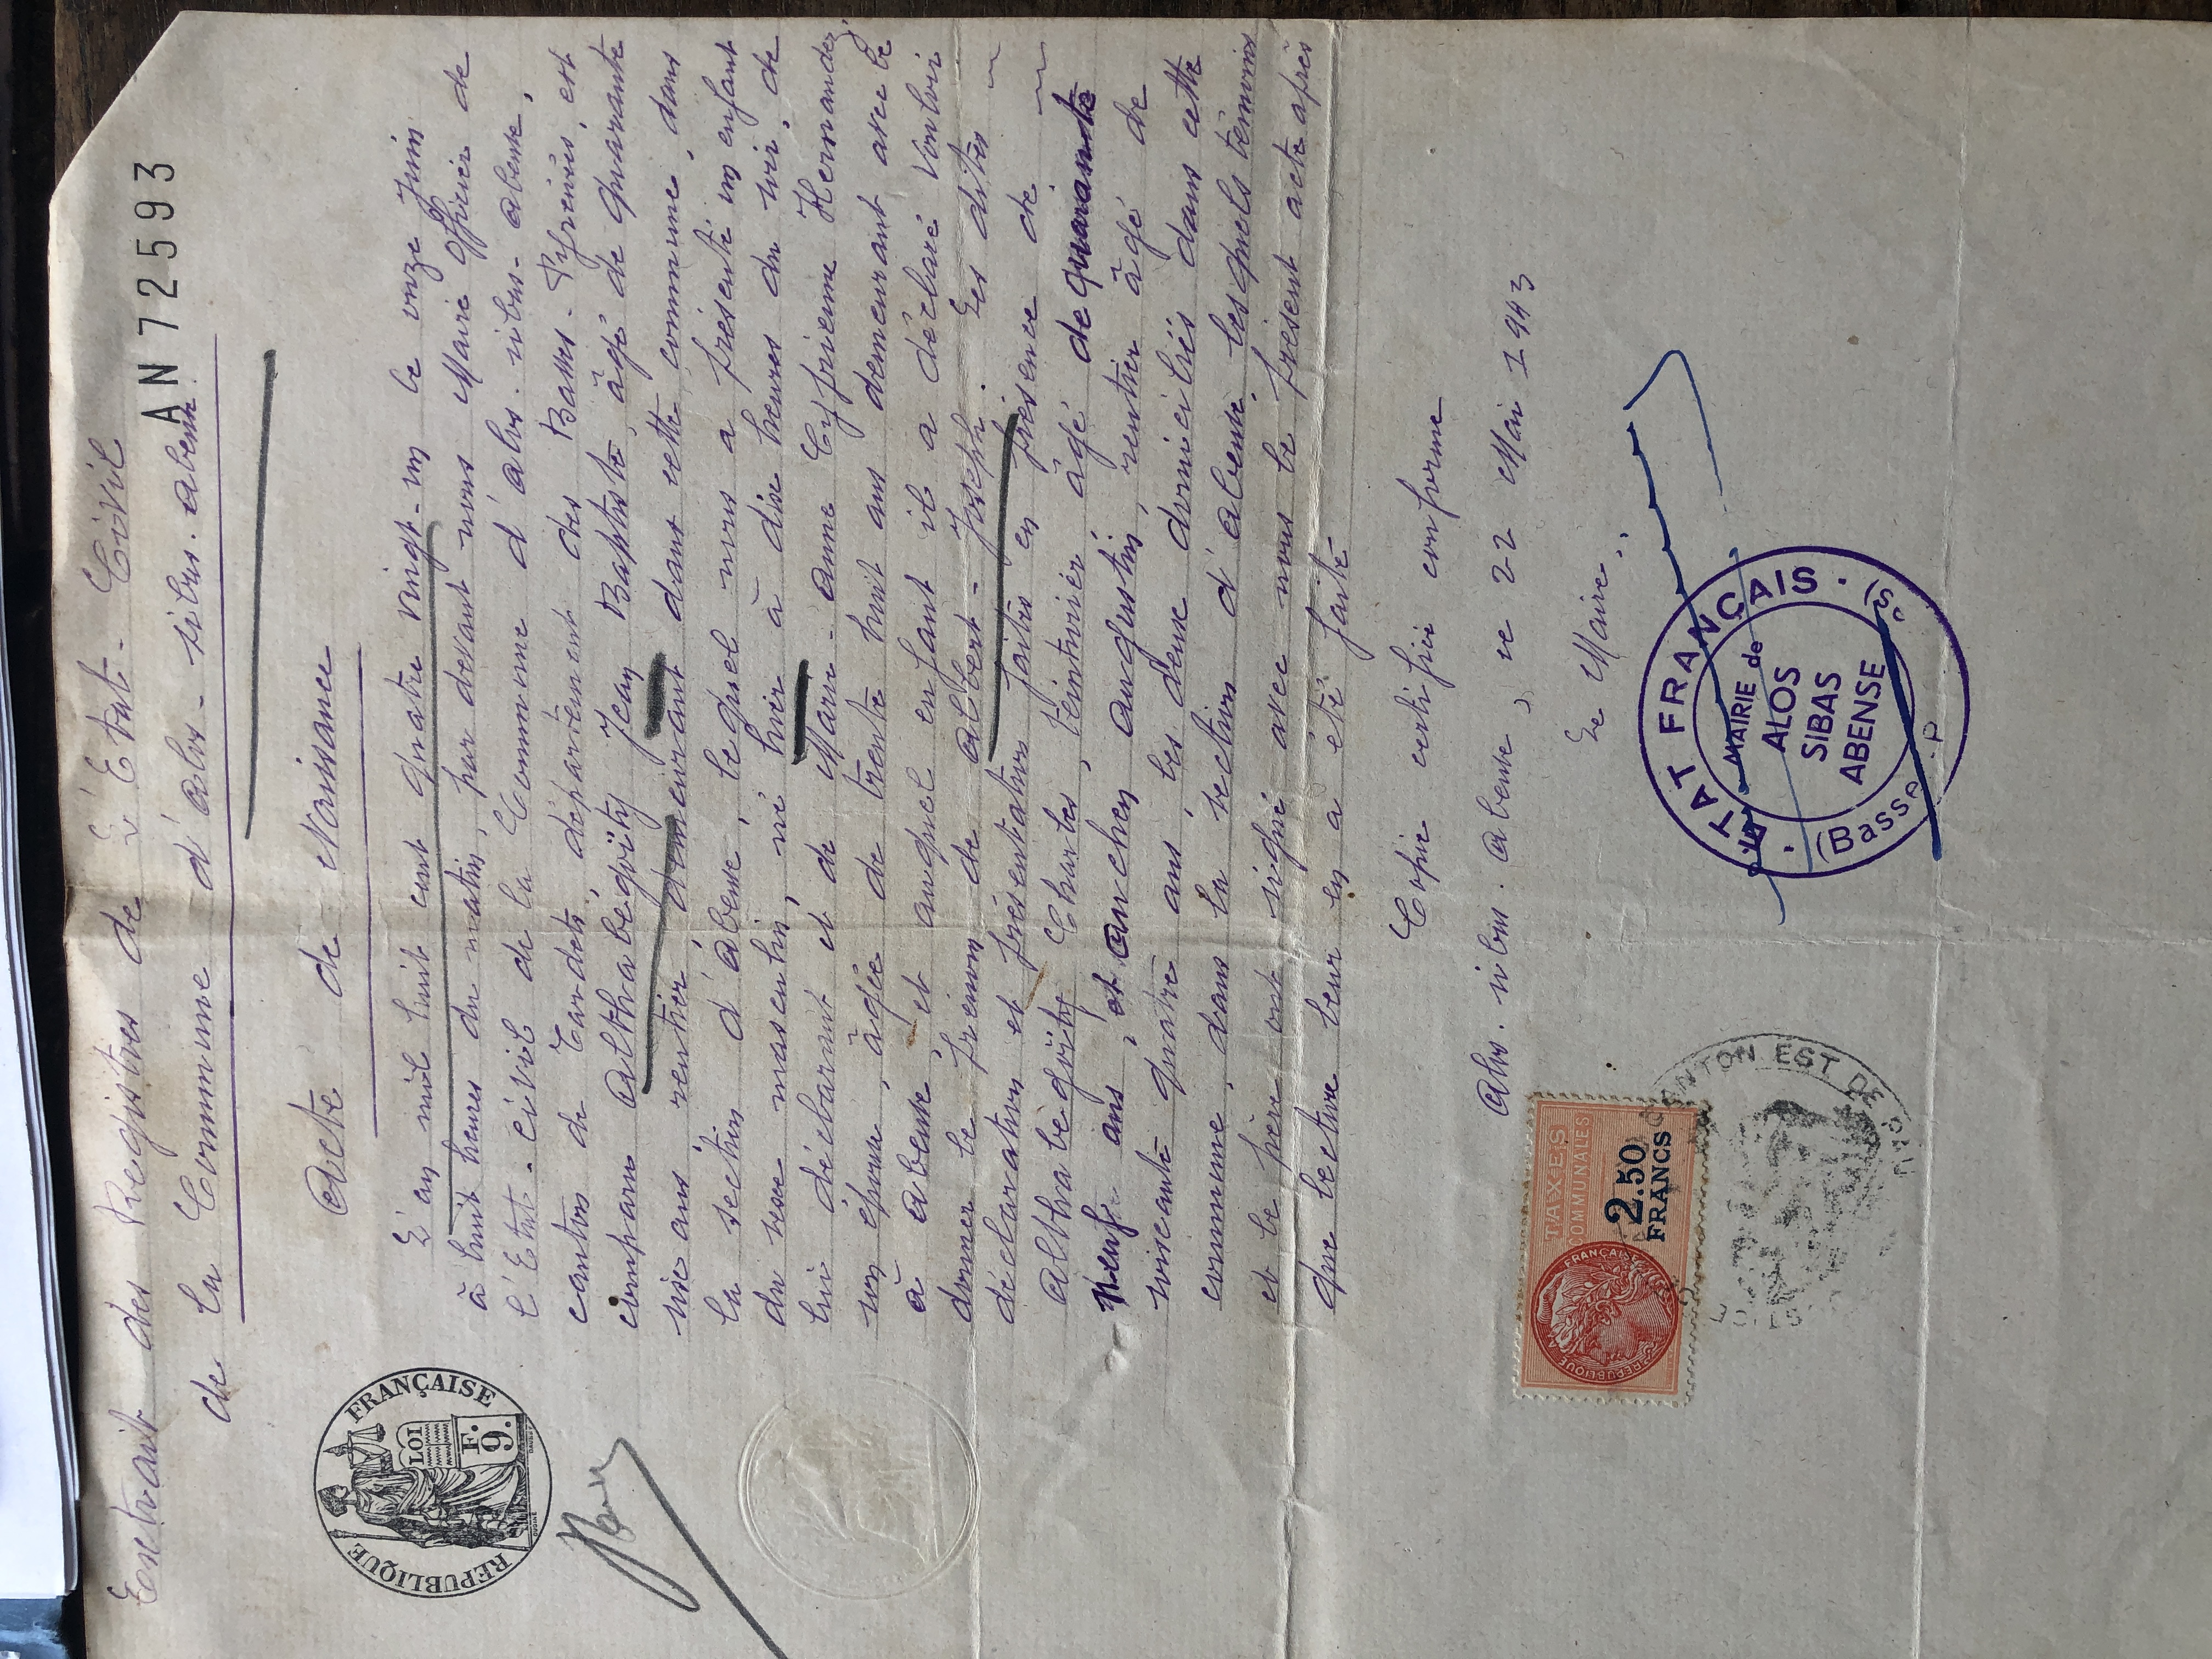 Extrait des Registres de L'État-Civil
AN72593
de la Commune d'Alos-Sibas-Abense
Acte de Naissance
L'an mil huit cent quatre vingt-un le onze Juin
à huit heures du matin, par devant nous Maire officier de
l'État-Civil de la Commune d'Alos-Sibas-Abense,
canton de Tardets, département des Basses-Pyrénées, est
comparu Althabegoïty Jean Baptiste, âgé de quarante
six ans, rentier demeurant dans cette commune, dans
la section d'Abense, lequel nous a présenté un enfant
du sexe masculin, né hier à dix heures du soir, de
lui déclarant et de Marie-Anne Cyprienne Hernandez,
son épouse, âgée de trente huit ans demeurant avec lui
à Abense, et auquel enfant il a déclaré vouloir
donner le prénom de Albert-Joseph. Les dites
déclaration et présentation faites en présence de
Althabégoïty Charles, teinturier âgé de quarante
neuf ans, et Anchen Augustin, rentier âgé de
soixante quatre ans, les deux domiciliés dans cette
commune, dans la section d'Abense, lesquels témoins
et le père ont signé avec nous le présent acte après
que lecture leur en a été faite
Copie certifiée conforme
Alos-Sibas-Abense, ce 22 Mai 1943
Le Maire..
REPUBLIQUE FRANÇAISE
LOI
F.
9.
TAXES
COMMUNALES
2.50
FRANCS
REPUBLIQUE FRANÇAISE
CANTON EST DE
ETAT FRANÇAIS
MAIRIE de
ALOS
SIBAS
ABENSE